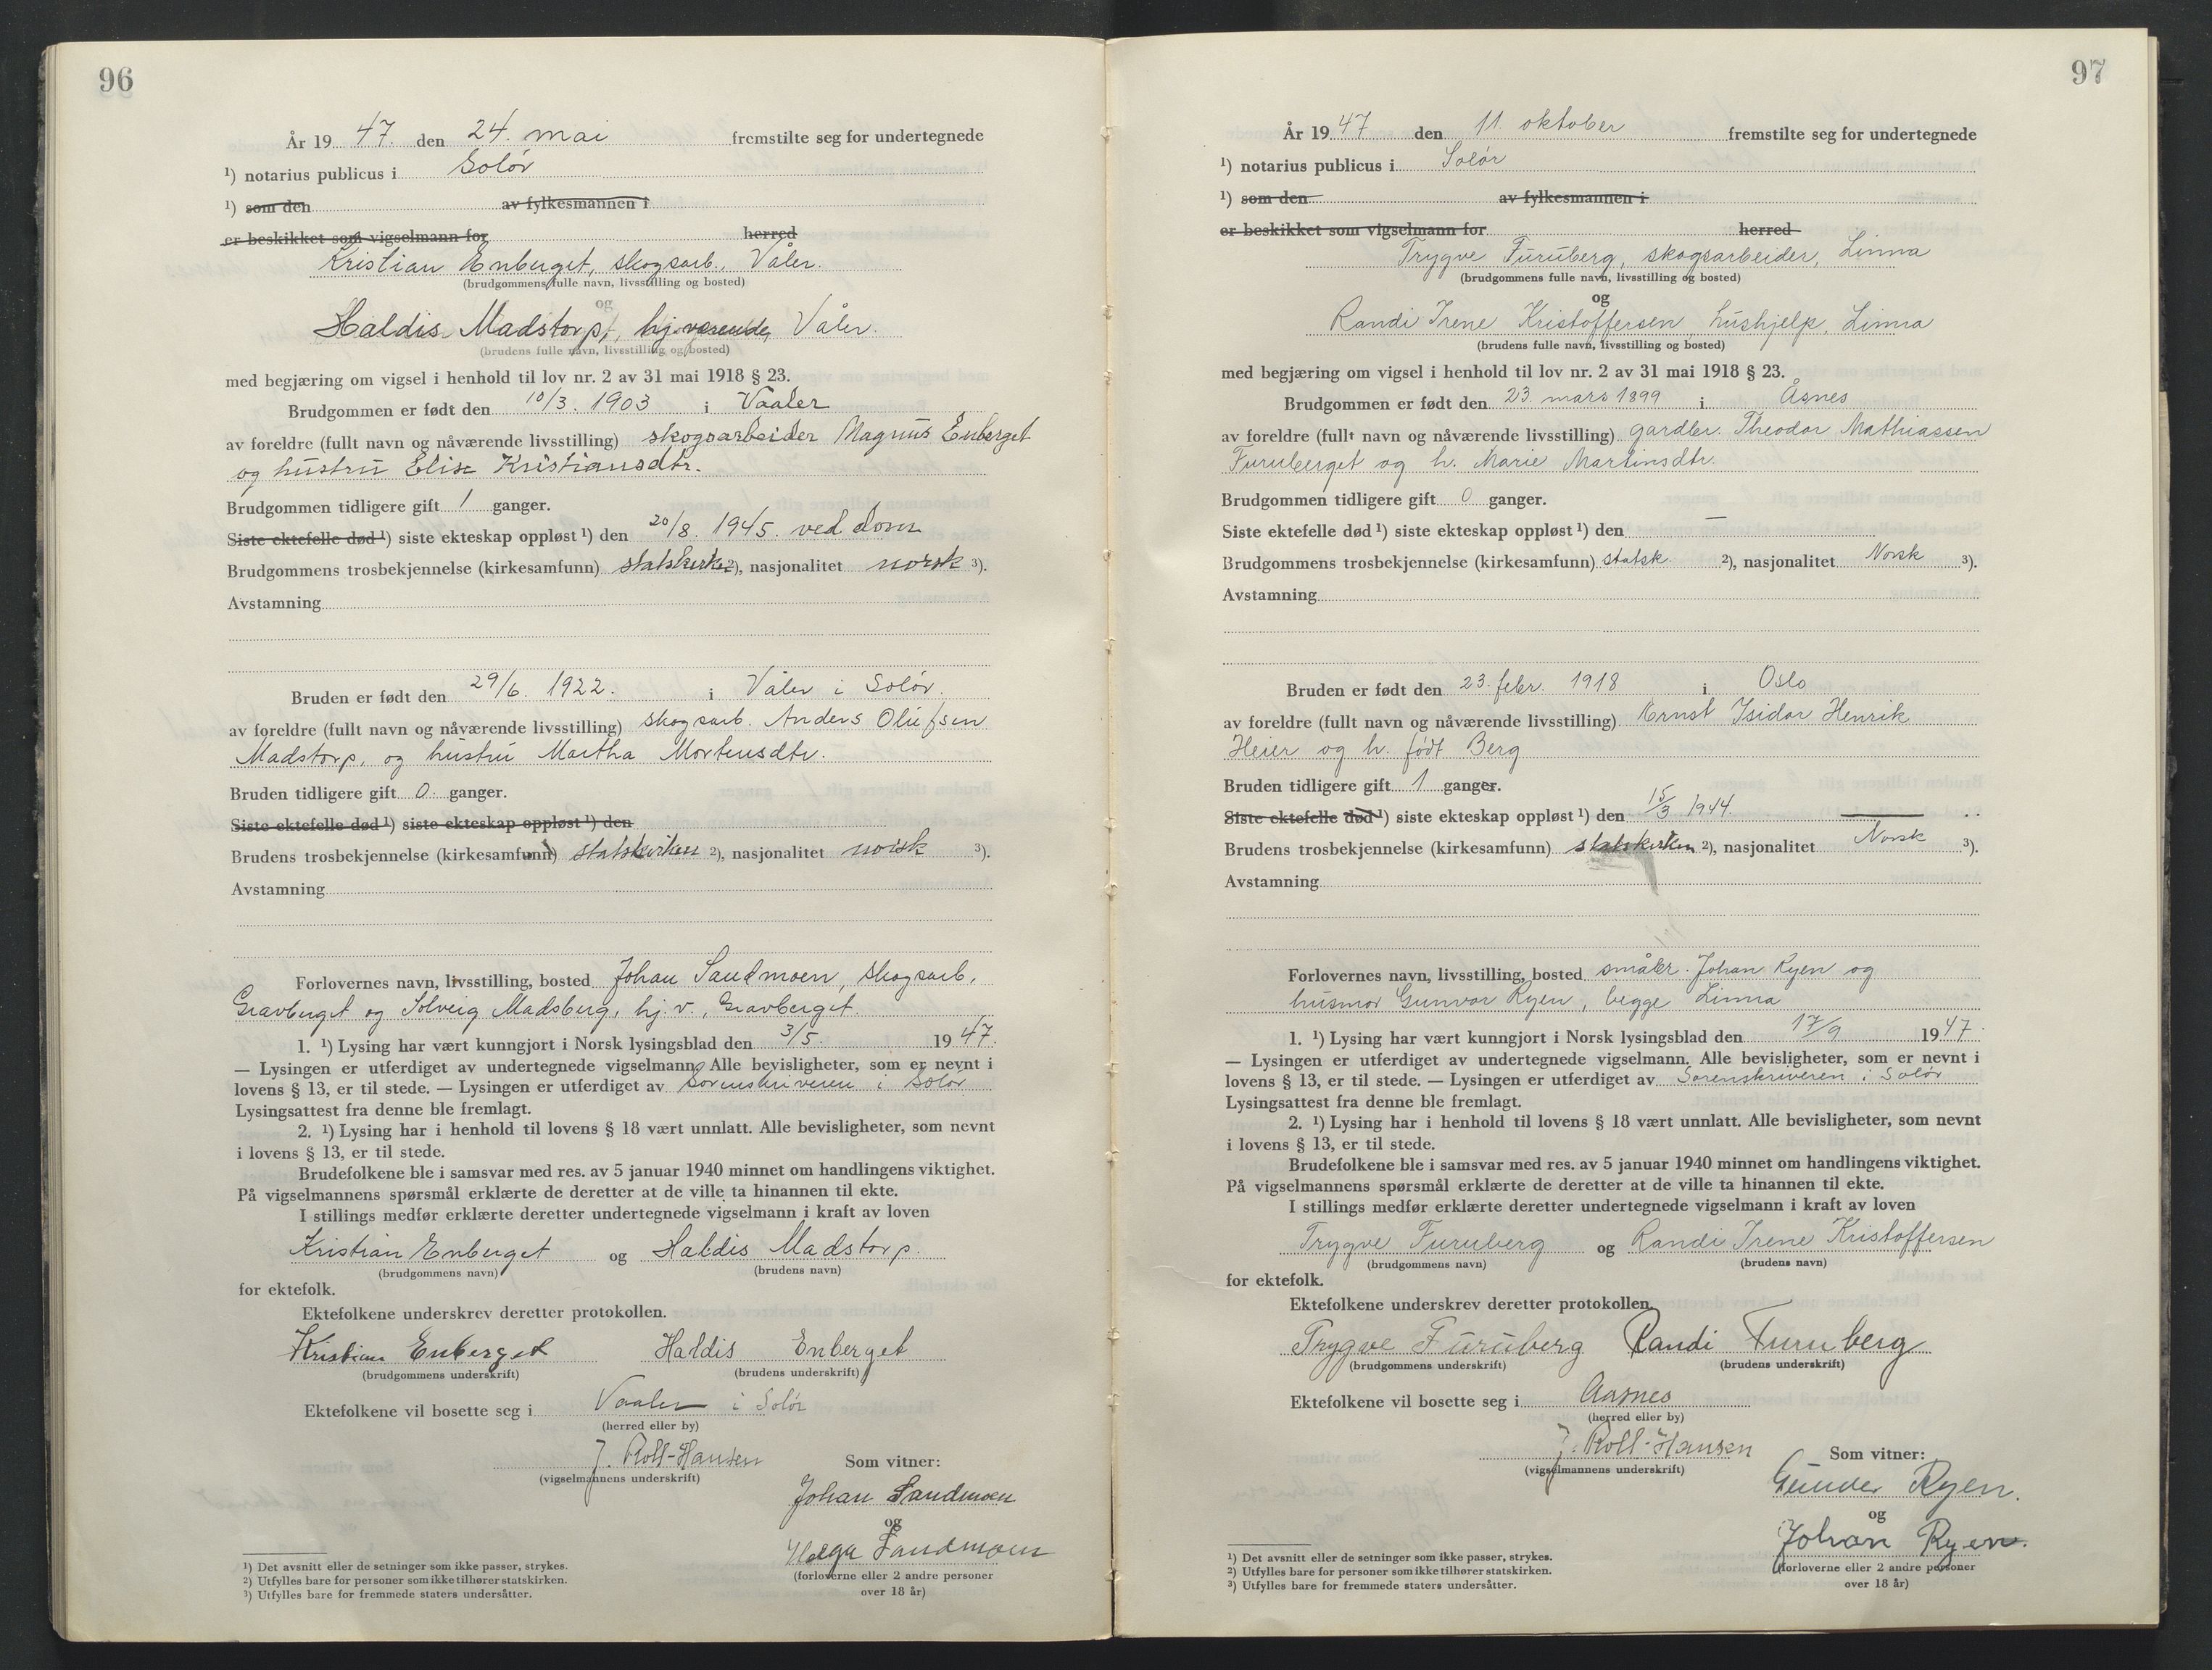 96
År 19 47. den 24. mai fremstilte seg for undertegnede
¹) notarius publicus i Solør
¹) som den av fylkesmannen i
er beskikket som vigselmann for herred
Kristian Enberget, skogsarb., Våler.
(brudgommens fulle navn, livsstilling og bosted)
og
Haldis Madstorp, hj.værende, Våler.
(brudens fulle navn, livsstilling og bosted)
med begjæring om vigsel i henhold til lov nr. 2 av 31 mai 1918 § 23.
Brudgommen er født den 10/3. 1903 i Vaaler
av foreldre (fullt navn og nåværende livsstilling) skogsarbeider Magnus Enberget
og hustru Elise Kristiansdtr.
Brudgommen tidligere gift 1 ganger.
Siste ektefelle død ¹) siste ekteskap oppløst ¹) den 20/8. 1945. ved dom
Brudgommens trosbekjennelse (kirkesamfunn) statskirke ²), nasjonalitet norsk ³).
Avstamning
Bruden er født den 29/6. 1922. i Våler i Solør.
av foreldre (fullt navn og nåværende livsstilling) skogsarb. Anders Olufsen
Madstorp, og hustru Martha Mortensdtr.
Bruden tidligere gift 0. ganger.
Siste ektefelle død ¹) siste ekteskap oppløst ¹) den
Brudens trosbekjennelse (kirkesamfunn) statskirken ²), nasjonalitet norsk ³).
Avstamning
Forlovernes navn, livsstilling, bosted Johan Sandmoen, skogsarb,
Gravberget og Solveig Madsberg, hj.v., Gravberget.
1. ¹) Lysing har vært kunngjort i Norsk lysingsblad den 3/5. 19 47.
— Lysingen er utferdiget av undertegnede vigselmann. Alle bevisligheter, som er nevnt i
lovens § 13, er til stede. — Lysingen er utferdiget av Sorenskriveren i Solør
Lysingsattest fra denne ble fremlagt.
2. ¹) Lysing har i henhold til lovens § 18 vært unnlatt. Alle bevisligheter, som nevnt
i lovens § 13, er til stede.
Brudefolkene ble i samsvar med res. av 5 januar 1940 minnet om handlingens viktighet.
På vigselmannens spørsmål erklærte de deretter at de ville ta hinannen til ekte.
I stillings medfør erklærte deretter undertegnede vigselmann i kraft av loven
Kristian Enberget og Haldis Madstorp.
(brudgommens navn) (brudens navn)
for ektefolk.
Ektefolkene underskrev deretter protokollen.
Kristian Enberget Haldis Enberget
(brudgommens underskrift) (brudens underskrift)
Ektefolkene vil bosette seg i Vaaler i Solør
(herred eller by)
J. Roll-Hansen
(vigselmannens underskrift)
Som vitner:
Johan Sandmoen
og
Helga Sandmoen
(forloverne eller 2 andre personer
over 18 år)
¹) Det avsnitt eller de setninger som ikke passer, strykes.
²) Utfylles bare for personer som ikke tilhører statskirken.
³) Utfylles bare for fremmede staters undersåtter.
97
År 19 47 den 11. oktober fremstilte seg for undertegnede
¹) notarius publicus i Solør
¹) som den av fylkesmannen i
er beskikket som vigselmann for herred
Trygve Furuberg, skogsarbeider, Linna
(brudgommens fulle navn, livsstilling og bosted)
og
Randi Irene Kristoffersen, hushjelp, Linna
(brudens fulle navn, livsstilling og bosted)
med begjæring om vigsel i henhold til lov nr. 2 av 31 mai 1918 § 23.
Brudgommen er født den 23. mars 1899 i Åsnes
av foreldre (fullt navn og nåværende livsstilling) gardbr. Theodor Mathiassen
Furuberget og h. Marie Martinsdtr.
Brudgommen tidligere gift 0 ganger.
Siste ektefelle død ¹) siste ekteskap oppløst ¹) den —
Brudgommens trosbekjennelse (kirkesamfunn) statsk. ²), nasjonalitet Norsk ³).
Avstamning
Bruden er født den 23. febr. 1918 i Oslo
av foreldre (fullt navn og nåværende livsstilling) Ernst Isidor Henrik
Heier og h. født Berg
Bruden tidligere gift 1 ganger.
Siste ektefelle død ¹) siste ekteskap oppløst ¹) den 15/3 1944.
Brudens trosbekjennelse (kirkesamfunn) statskirken ²), nasjonalitet Norsk ³).
Avstamning
Forlovernes navn, livsstilling, bosted småbr. Johan Ryen og
husmor Gunvor Ryen, begge Linna
1. ¹) Lysing har vært kunngjort i Norsk lysingsblad den 17/9 19 47.
— Lysingen er utferdiget av undertegnede vigselmann. Alle bevisligheter, som er nevnt i
lovens § 13, er til stede. — Lysingen er utferdiget av Sorenskriveren i Solør
Lysingsattest fra denne ble fremlagt.
2. ¹) Lysing har i henhold til lovens § 18 vært unnlatt. Alle bevisligheter, som nevnt
i lovens § 13, er til stede.
Brudefolkene ble i samsvar med res. av 5 januar 1940 minnet om handlingens viktighet.
På vigselmannens spørsmål erklærte de deretter at de ville ta hinannen til ekte.
I stillings medfør erklærte deretter undertegnede vigselmann i kraft av loven
Trygve Furuberg og Randi Irene Kristoffersen
(brudgommens navn) (brudens navn)
for ektefolk.
Ektefolkene underskrev deretter protokollen.
Trygve Furuberg Randi Furuberg
(brudgommens underskrift) (brudens underskrift)
Ektefolkene vil bosette seg i Aasnes
(herred eller by)
J. Roll-Hansen
(vigselmannens underskrift)
Som vitner:
Gunvor Ryen.
og
Johan Ryen.
(forloverne eller 2 andre personer
over 18 år)
¹) Det avsnitt eller de setninger som ikke passer, strykes.
²) Utfylles bare for personer som ikke tilhører statskirken.
³) Utfylles bare for fremmede staters undersåtter.